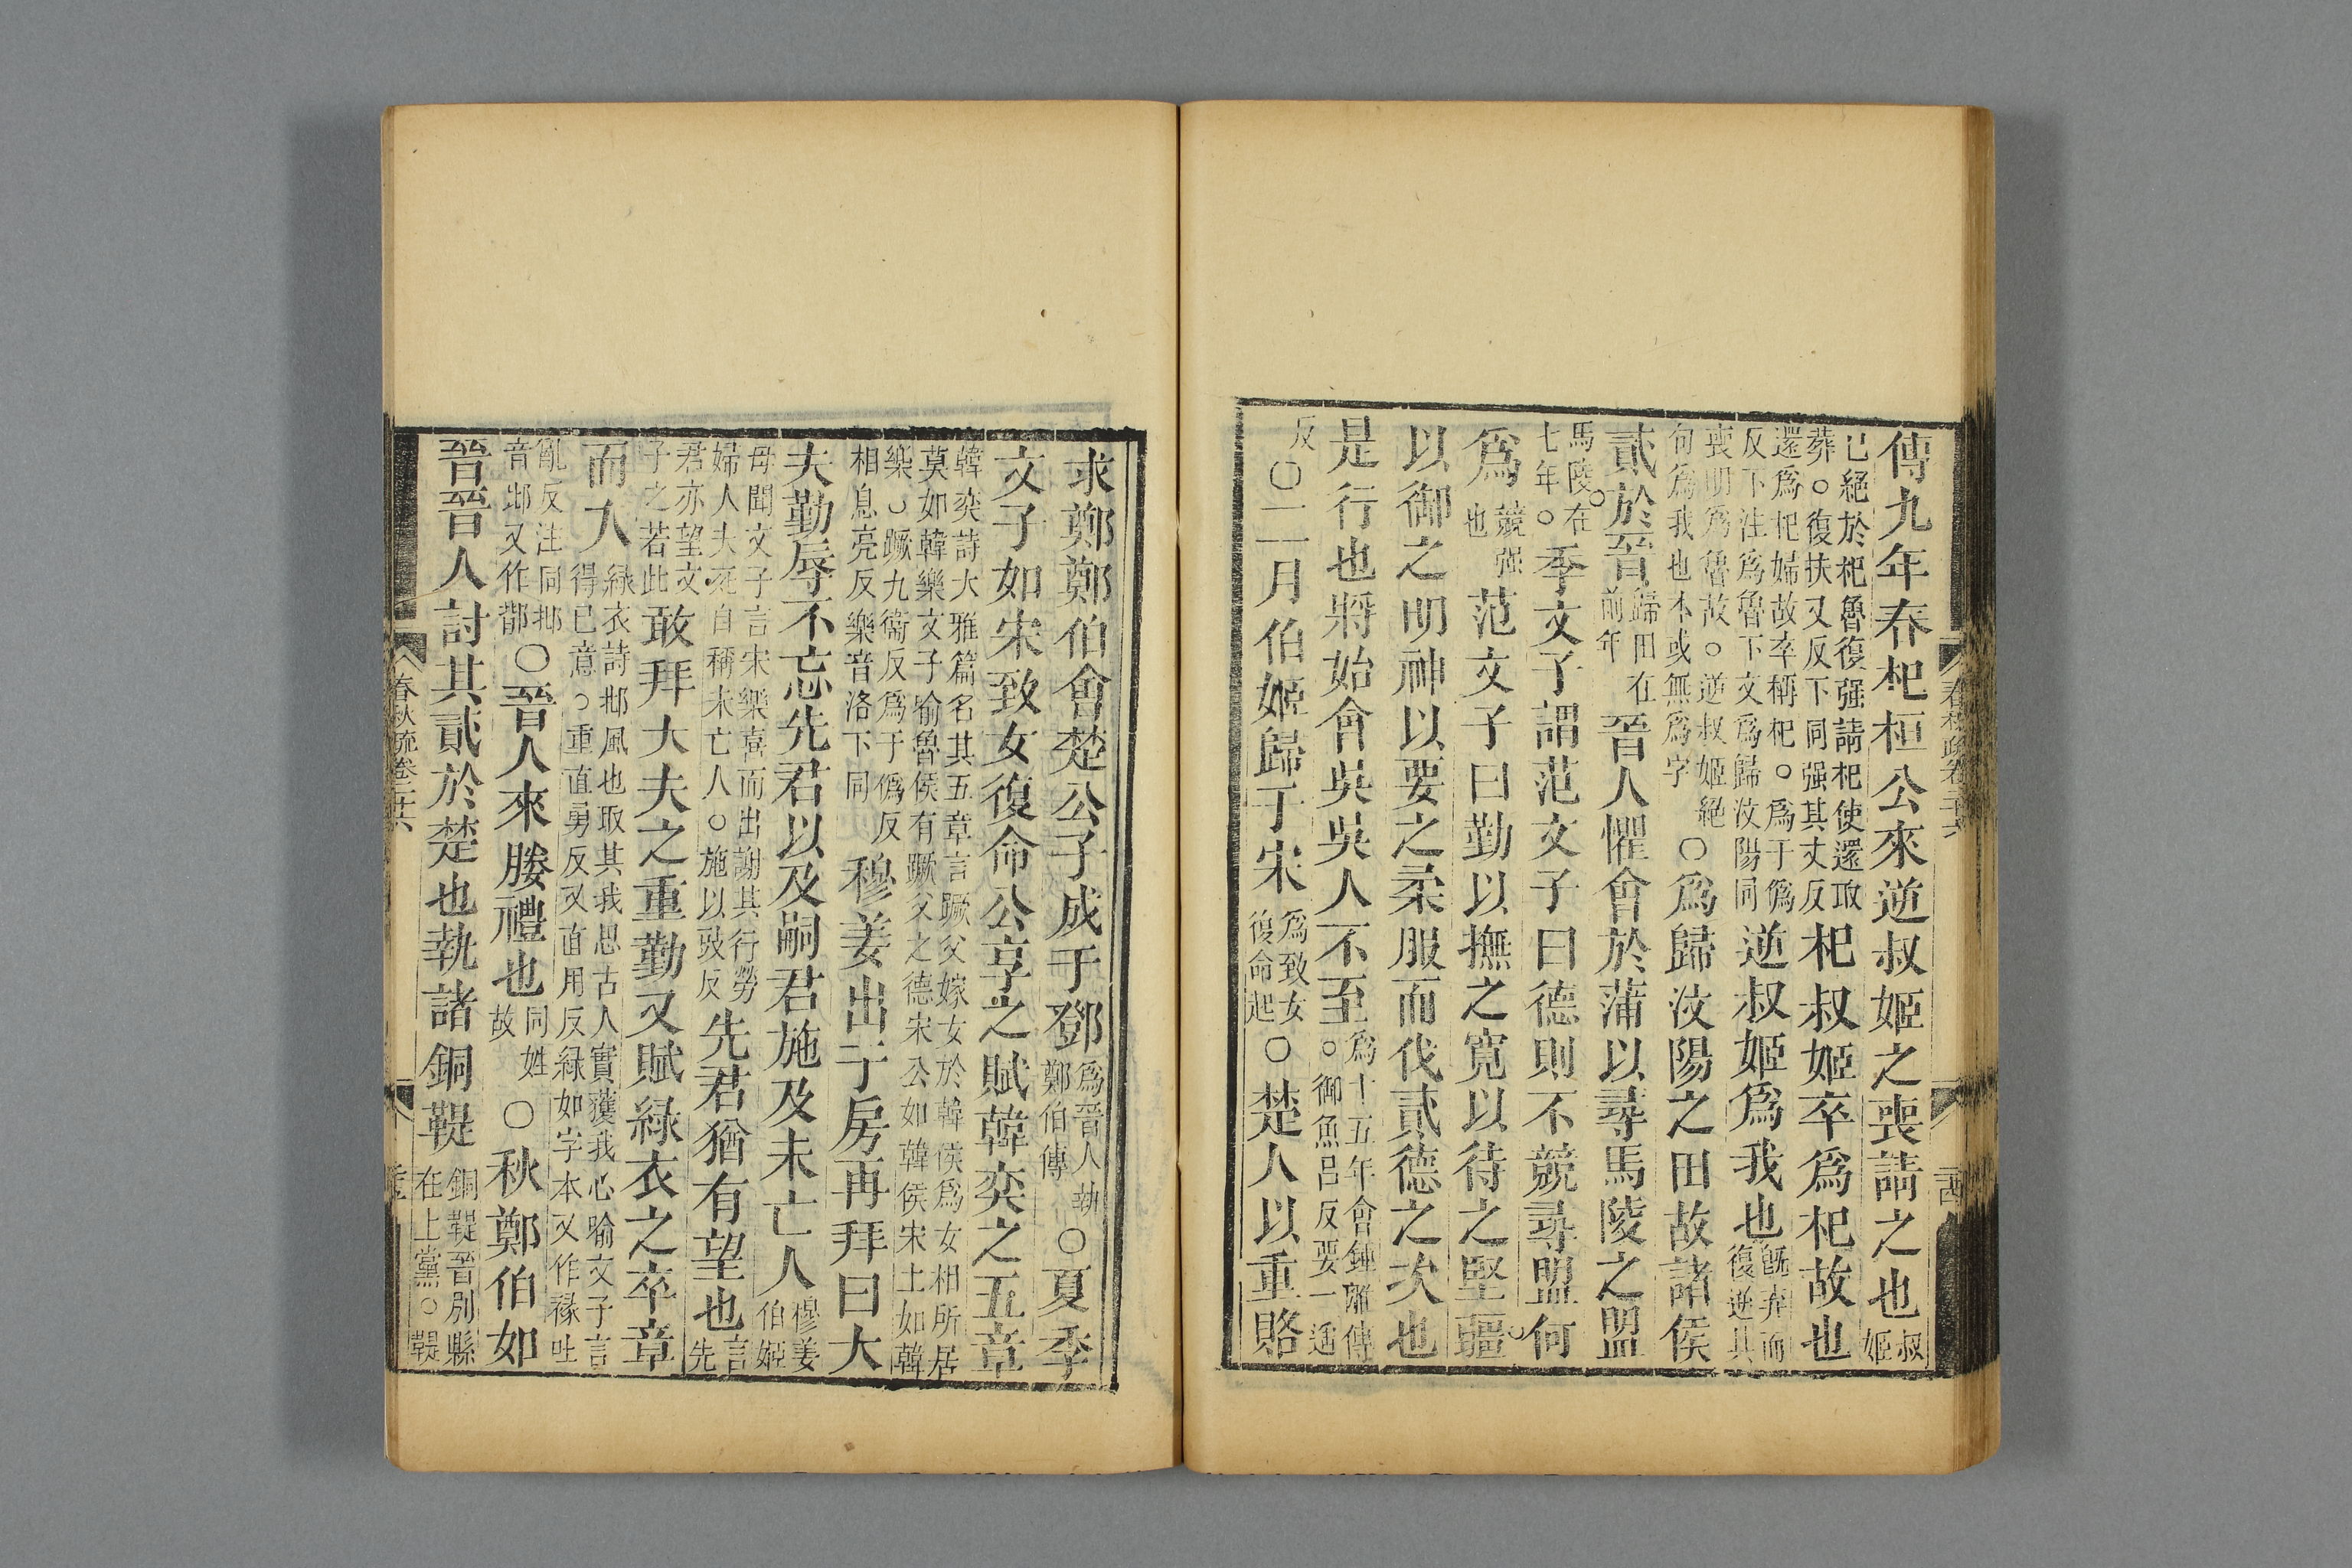 傳九年春杞桓公來逆叔姬之喪請之也叔姬
已絕於杞魯復强請杞使還取葬○復扶又反下同强其丈反杞叔姬卒爲杞故也
還爲杞婦故卒稱杞○爲于僞反下注爲魯下文爲歸汶陽同逆叔姬爲我也旣弃而復逆其
喪明爲魯故○逆叔姬絕句爲我也本或無爲字○爲歸汶陽之田故諸侯
貳於晉歸田在前年晉人懼會於蒲以尋馬陵之盟
馬陵在七年○季文子謂范文子曰德則不競尋盟何
爲競强也范文子曰勤以撫之寬以待之堅疆
以御之明神以要之柔服而伐貳德之次也
是行也將始會吳吳人不至爲十五年會鍾離傳○御魚呂反要一遥
反○二月伯姬歸于宋爲致女復命起○楚人以重賂
求鄭鄭伯會楚公子成于鄧爲晉人執鄭伯傳○夏季
文子如宋致女復命公享之賦韓奕之五章
韓奕詩大雅篇名其五章言蹶父嫁女於韓侯爲女相所居莫如韓樂文子喻魯侯有蹶父之德宋公如韓侯宋土如韓
樂○蹶九衞反爲于僞反相息亮反樂音洛下同穆姜出于房再拜曰大
夫勤辱不忘先君以及嗣君施及未亡人穆姜伯姬
母聞文子言宋樂喜而出謝其行勞婦人夫死自稱未亡人○施以豉反先君猶有望也言先
君亦望文子之若此敢拜大夫之重勤又賦綠衣之卒章
而入綠衣詩邶風也取其我思古人實獲我心喻文子言得已意○重直勇反又直用反綠如字本又作褖吐
亂反注同邶音邶又作鄁○晉人來媵禮也同姓故○秋鄭伯如
晉晉人討其貳於楚也執諸銅鞮銅鞮晉別縣在上黨○鞮
春秋疏卷二十六